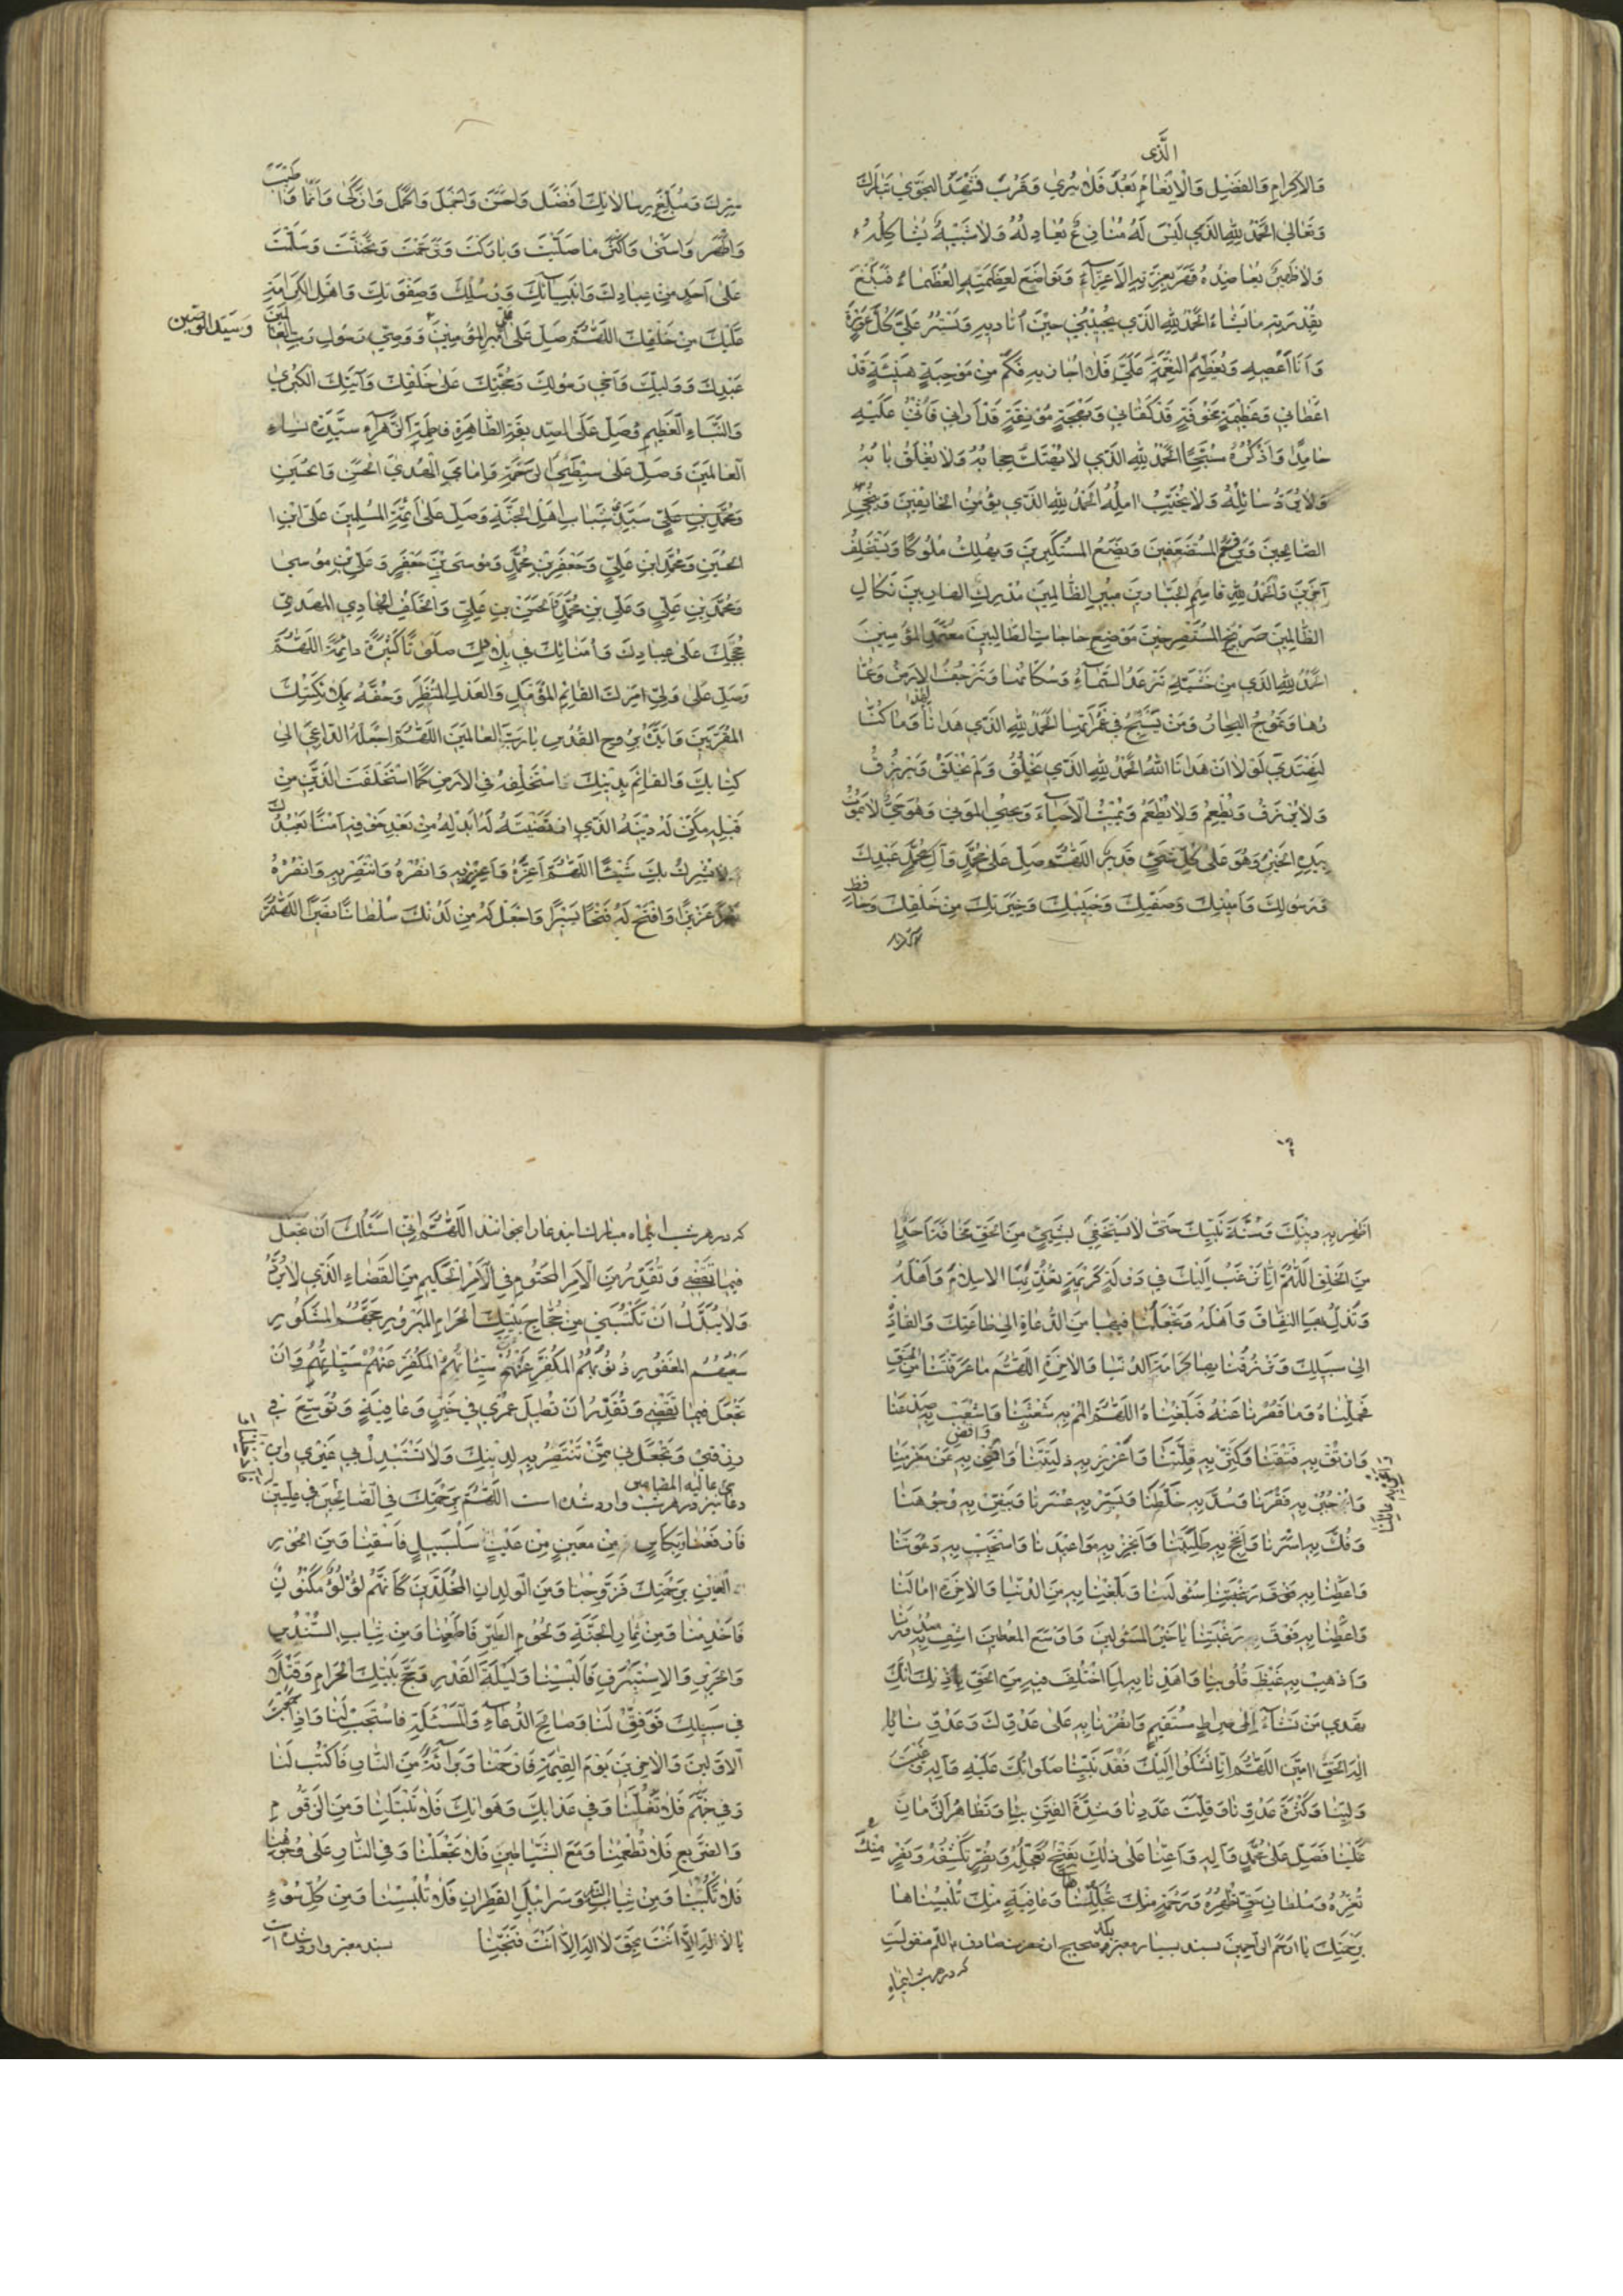 الَّذی
وَالاِکرامِ وَالفَضْلِ وَالاِنْعامِ بَعُدَ فَلا یُری وَقَرُبَ فَشَهِدَ النَّجْوی تَبارَكَ
وَتَعالی اَلحَمْدُ لِلّٰهِ الَّذی لَیْسَ لَهُ مُنازِعٌ یُعادِلُهُ وَلا شَبیهٌ یُشاکِلُهُ
وَلا ظَهیرٌ یُعاضِدُهُ قَهَرَ بِعِزَّتِهِ الاَعِزّآءَ وَتَواضَعَ لِعَظَمَتِهِ العُظَماءُ فَبَلَغَ
بِقُدْرَتِهِ ما یَشاءُ اَلحَمْدُ لِلّٰهِ الَّذی یُجیبُنی حینَ اُنادیهِ وَیَسْتُرُ عَلَیَّ کُلَّ عَوْرَةٍ
وَاَنَا اَعْصیهِ وَیُعَظِّمُ النِّعْمَةَ عَلَیَّ فَلا اُجازیهِ فَکَمْ مِنْ مَوْهِبَةٍ هَنیئَةٍ قَدْ
اَعْطانی وَعَظیمَةٍ مَخُوفَةٍ قَدْ کَفانی وَبَهْجَةٍ مُونِقَةٍ قَدْ اَرانی فَاُثْنی عَلَیْهِ
حامِدًا وَاَذْکُرُهُ مُسَبِّحًا اَلحَمْدُ لِلّٰهِ الَّذی لا یُهْتَكُ حِجابُهُ وَلا یُغْلَقُ بابُهُ
وَلا یُرَدُّ سائِلُهُ وَلا یُخَیَّبُ امِلُهُ اَلحَمْدُ لِلّٰهِ الَّذی یُؤْمِنُ الخائِفینَ وَیُنَجِّی
الصّالِحینَ وَیَرْفَعُ المُسْتَضْعَفینَ وَیَضَعُ المُسْتَکْبِرینَ وَیُهْلِكُ مُلُوکًا وَیَسْتَخْلِفُ
آخَرینَ وَالحَمْدُ لِلّٰهِ قاصِمِ الجَبّارینَ مُبیرِ الظّالِمینَ مُدْرِكِ الهارِبینَ نَکالِ
الظّالِمینَ صَریخِ المُسْتَصْرِخینَ مَوْضِعِ حاجاتِ الطّالِبینَ مُعْتَمَدِ المُؤْمِنینَ
اَلحَمْدُ لِلّٰهِ الَّذی مِنْ خَشْیَتِهِ تَرْعَدُ السَّمآءُ وَسُکّانُها وَتَرْجُفُ الاَرْضُ وَعُمّا
رُها وَتَمُوجُ البِحارُ وَمَنْ یَسْبَحُ فی غَمَراتِها اَلحَمْدُ لِلّٰهِ الَّذی هَدانا لِهٰذا وَما کُنّا
لِنَهْتَدِیَ لَوْلا اَنْ هَدانَا اللهُ اَلحَمْدُ لِلّٰهِ الَّذی یَخْلُقُ وَلَمْ یُخْلَقْ وَیَرْزُقُ
وَلا یُرْزَقُ وَیُطْعِمُ وَلا یُطْعَمُ وَیُمیتُ الاَحیاءَ وَیُحْیِی المَوْتی وَهُوَ حَیٌّ لا یَمُوتُ
بِیَدِهِ الخَیْرُ وَهُوَ عَلی کُلِّ شَیْءٍ قَدیرٌ اَللّٰهُمَّ صَلِّ عَلی مُحَمَّدٍ وَآلِ مُحَمَّدٍ عَبْدِكَ
وَرَسُولِكَ وَاَمینِكَ وَصَفِیِّكَ وَحَبیبِكَ وَخِیَرَتِكَ مِنْ خَلْقِكَ وَحافِظِ
سِرِّكَ وَمُبَلِّغِ رِسالاتِكَ اَفْضَلَ وَاَحْسَنَ وَاَجْمَلَ وَاَکْمَلَ وَاَزْکی وَاَنْمی وَاَطْیَبَ
وَاَطْهَرَ وَاَسْنی وَاَکْثَرَ ما صَلَّیْتَ وَبارَکْتَ وَتَرَحَّمْتَ وَتَحَنَّنْتَ وَسَلَّمْتَ
عَلی اَحَدٍ مِنْ عِبادِكَ وَاَنبِیآئِكَ وَرُسُلِكَ وَصِفْوَتِكَ وَاَهْلِ الکَرامَةِ
عَلَیْكَ مِنْ خَلْقِكَ اَللّٰهُمَّ صَلِّ عَلی عَلِیٍّ اَمیرِ المُؤْمِنینَ وَوَصِیِّ رَسُولِ رَبِّ العالَمینَ
وَسَیِّدِ الوَصِیّینَ
عَبْدِكَ وَوَلِیِّكَ وَاَخی رَسُولِكَ وَحُجَّتِكَ عَلی خَلْقِكَ وَآیَتِكَ الکُبْری
وَالنَّبَاءِ العَظیمِ وَصَلِّ عَلَی الصِّدّیقَةِ الطّاهِرَةِ فاطِمَةَ الزَّهْرآءِ سَیِّدَةِ نِساءِ
العالَمینَ وَصَلِّ عَلی سِبْطَیِ الرَّحْمَةِ وَاِمامَیِ الهُدی الحَسَنِ وَالحُسَیْنِ
سَیِّدَیْ شَبابِ اَهْلِ الجَنَّةِ وَصَلِّ عَلی اَئِمَّةِ المُسْلِمینَ عَلِیِّ ابْنِ
الحُسَیْنِ وَمُحَمَّدِ ابْنِ عَلِیٍّ وَجَعْفَرِ بْنِ مُحَمَّدٍ وَمُوسَی بْنِ جَعْفَرٍ وَعَلِیِّ بْنِ مُوسی
وَمُحَمَّدِ بْنِ عَلِیٍّ وَعَلِیِّ بْنِ مُحَمَّدٍ وَالحَسَنِ بْنِ عَلِیٍّ وَالخَلَفِ الهادِی المَهْدِیِّ
حُجَجِكَ عَلی عِبادِكَ وَاُمَنائِكَ فی بِلادِكَ صَلوةً کَثیرَةً دائِمَةً اَللّٰهُمَّ
وَصَلِّ عَلی وَلِیِّ اَمْرِكَ القائِمِ المُؤَمَّلِ وَالعَدْلِ المُنْتَظَرِ وَحُفَّهُ بِمَلائِکَتِكَ
المُقَرَّبینَ وَاَیِّدْهُ بِرُوحِ القُدُسِ یا رَبَّ العالَمینَ اَللّٰهُمَّ اجْعَلْهُ الدّاعِیَ اِلی
کِتابِكَ وَالقائِمَ بِدینِكَ اسْتَخْلِفْهُ فِی الاَرْضِ کَمَا اسْتَخْلَفْتَ الَّذینَ مِنْ
قَبْلِهِ مَکِّنْ لَهُ دینَهُ الَّذی ارْتَضَیْتَهُ لَهُ اَبْدِلْهُ مِنْ بَعْدِ خَوْفِهِ اَمْنًا یَعْبُدُكَ
لا یُشْرِكُ بِكَ شَیْئًا اَللّٰهُمَّ اَعِزَّهُ وَاَعْزِزْ بِهِ وَانْصُرْهُ وَانْتَصِرْ بِهِ وَانْصُرْهُ
نَصْرًا عَزیزًا وَافْتَحْ لَهُ فَتْحًا یَسیرًا وَاجْعَلْ لَهُ مِنْ لَدُنْكَ سُلْطانًا نَصیرًا اَللّٰهُمَّ
اَظْهِرْ بِهِ دینَكَ وَسُنَّةَ نَبِیِّكَ حَتّی لا یَسْتَخْفِیَ بِشَیْءٍ مِنَ الحَقِّ مَخافَةَ اَحَدٍ
مِنَ الخَلْقِ اَللّٰهُمَّ اِنّا نَرْغَبُ اِلَیْكَ فی دَوْلَةٍ کَریمَةٍ تُعِزُّ بِهَا الاِسْلامَ وَاَهْلَهُ
وَتُذِلُّ بِهَا النِّفاقَ وَاَهْلَهُ وَتَجْعَلُنا فیها مِنَ الدُّعاةِ اِلی طاعَتِكَ وَالقادَةِ
اِلی سَبیلِكَ وَتَرْزُقُنا بِها کَرامَةَ الدُّنْیا وَالاخِرَةِ اَللّٰهُمَّ ما عَرَّفْتَنا مِنَ الحَقِّ
فَحَمِّلْناهُ وَما قَصُرْنا عَنْهُ فَبَلِّغْناهُ اَللّٰهُمَّ المُمْ بِهِ شَعَثَنا وَاشْعَبْ بِهِ صَدْعَنا
وَارْتُقْ بِهِ فَتْقَنا وَکَثِّرْ بِهِ قِلَّتَنا وَاَعْزِزْ بِهِ ذِلَّتَنا وَاقْضِ بِهِ عَنْ مَغْرَمِنا
وَاجْبُرْ بِهِ فَقْرَنا وَسُدَّ بِهِ خَلَّتَنا وَیَسِّرْ بِهِ عُسْرَنا وَبَیِّضْ بِهِ وُجُوهَنا
وَفُكَّ بِهِ اَسْرَنا وَاَنْجِحْ بِهِ طَلِبَتَنا وَاَنْجِزْ بِهِ مَواعیدَنا وَاسْتَجِبْ بِهِ دَعْوَتَنا
وَاَعْطِنا بِهِ فَوْقَ رَغْبَتِنا سُؤلَنا وَبَلِّغْنا بِهِ مِنَ الدُّنْیا وَالاخِرَةِ امالَنا
وَاَعْطِنا بِهِ فَوْقَ رَغْبَتِنا یا خَیْرَ المَسْئُولینَ وَاَوْسَعَ المُعْطینَ اِشْفِ بِهِ صُدُورَنا
وَاَذْهِبْ بِهِ غَیْظَ قُلُوبِنا وَاهْدِنا بِهِ لِمَا اخْتُلِفَ فیهِ مِنَ الحَقِّ بِاِذْنِكَ اِنَّكَ
تَهْدی مَنْ تَشآءُ اِلی صِراطٍ مُسْتَقیمٍ وَانْصُرْنا بِهِ عَلی عَدُوِّكَ وَعَدُوِّنا
اِلهَ الحَقِّ امینَ اَللّٰهُمَّ اِنّا نَشْکُو اِلَیْكَ فَقْدَ نَبِیِّنا صَلَواتُكَ عَلَیْهِ وَآلِهِ وَغَیْبَةَ
وَلِیِّنا وَکَثْرَةَ عَدُوِّنا وَقِلَّةَ عَدَدِنا وَشِدَّةَ الفِتَنِ بِنا وَتَظاهُرَ الزَّمانِ
عَلَیْنا فَصَلِّ عَلی مُحَمَّدٍ وَآلِهِ وَاَعِنّا عَلی ذلِكَ بِفَتْحٍ تُعَجِّلُهُ وَبِضُرٍّ تَکْشِفُهُ وَنَصْرٍ
مِنْكَ
تُعِزُّهُ وَسُلْطانِ حَقٍّ تُظْهِرُهُ وَرَحْمَةٍ مِنْكَ تُجَلِّلُناها وَعافِیَةٍ مِنْكَ تُلْبِسُناها
بِرَحْمَتِكَ یا اَرْحَمَ الرّاحِمینَ بسند بسیار معتبر بلکه صحیح از حضرت صادق منقولست
که در هر شب اینماه
که در هر شب اینماه مبارك ایندعا را بخوانند اَللّٰهُمَّ اِنّی اَسْئَلُكَ اَنْ تَجْعَلَ
فیما تَقْضی وَتُقَدِّرُ مِنَ الاَمْرِ المَحْتُومِ فِی الاَمْرِ الحَکیمِ مِنَ القَضاءِ الَّذی لا یُرَدُّ
وَلا یُبَدَّلُ اَنْ تَکْتُبَنی مِنْ حُجّاجِ بَیْتِكَ الحَرامِ المَبْرُورِ حَجُّهُمُ المَشْکُورِ
سَعْیُهُمُ المَغْفُورِ ذُنُوبُهُمُ المُکَفَّرِ عَنْهُمْ سَیِّئاتُهُمْ وَاَنْ
تَجْعَلَ فیما تَقْضی وَتُقَدِّرُ اَنْ تُطیلَ عُمْری فی خَیْرٍ وَعافِیَةٍ وَتُوَسِّعَ فی
رِزْقی وَتَجْعَلَنی مِمَّنْ تَنْتَصِرُ بِهِ لِدینِكَ وَلا تَسْتَبْدِلْ بی غَیْری واین
دعا نیز در هر شب وارد شده است اَللّٰهُمَّ بِرَحْمَتِكَ فِی الصّالِحینَ فی عِلِّیّینَ
فَارْفَعْنا وَبِکَاْسٍ مِنْ مَعینٍ مِنْ عَیْنٍ سَلْسَبیلٍ فَاسْقِنا وَمِنَ الحُورِ
العینِ بِرَحْمَتِكَ فَزَوِّجْنا وَمِنَ الوِلْدانِ المُخَلَّدینَ کَاَنَّهُمْ لُؤْلُؤٌ مَکْنُونٌ
فَاَخْدِمْنا وَمِنْ ثِمارِ الجَنَّةِ وَلُحُومِ الطَّیْرِ فَاَطْعِمْنا وَمِنْ ثِیابِ السُّنْدُسِ
وَالحَریرِ وَالاِسْتَبْرَقِ فَاَلْبِسْنا وَلَیْلَةَ القَدْرِ وَحَجَّ بَیْتِكَ الحَرامِ وَقَتْلًا
فی سَبیلِكَ فَوَفِّقْ لَنا وَصالِحَ الدُّعآءِ وَالمَسْئَلَةِ فَاسْتَجِبْ لَنا وَاِذا جَمَعْتَ
الاَوَّلینَ وَالاخِرینَ یَوْمَ القِیمَةِ فَارْحَمْنا وَبَرآئَةً مِنَ النّارِ فَاکْتُبْ لَنا
وَفی جَهَنَّمَ فَلا تَغُلَّنا وَفی عَذابِكَ وَهَوانِكَ فَلا تَبْتَلِنا وَمِنَ الزَّقُّومِ
وَالضَّریعِ فَلا تُطْعِمْنا وَمَعَ الشَّیاطینِ فَلا تَجْعَلْنا وَفِی النّارِ عَلی وُجُوهِنا
فَلا تَکُبَّنا وَمِنْ ثِیابِ النّارِ وَسَرابیلِ القَطِرانِ فَلا تُلْبِسْنا وَمِنْ کُلِّ سُوءٍ
یا لا اِلهَ اِلّا اَنْتَ بِحَقِّ لا اِلهَ اِلّا اَنْتَ فَنَجِّنا بسند معتبر وارد شده است